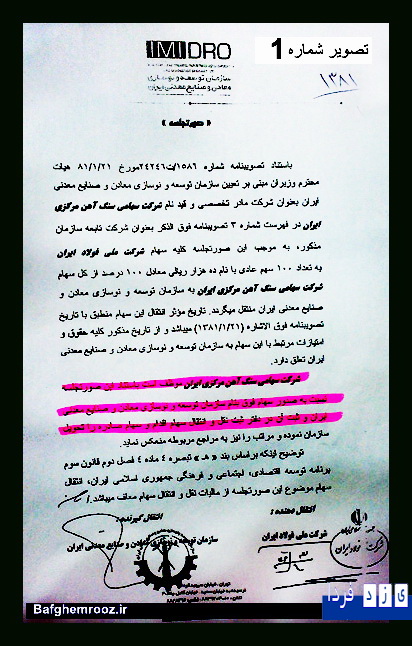 IMIDRO
تصویر شماره 1
۱۳۸۱
سازمان توسعه و نوسازی
معادن و صنایع معدنی ایران
« صورتجلسه »
باستناد تصویبنامه شماره ۱۵۸۶/ت۲۴۲۴۶مورخ ۸۱/۱/۲۱ هیات
محترم وزیران مبنی بر تعیین سازمان توسعه و نوسازی معادن و صنایع معدنی
ایران بعنوان شرکت مادر تخصصی و قید نام شرکت سهامی سنگ آهن مرکزی
ایران در فهرست شماره ۳ تصویبنامه فوق الذکر بعنوان شرکت تابعه سازمان
مذکور، به موجب این صورتجلسه کلیه سهام شرکت ملی فولاد ایران
به تعداد ۱۰۰ سهم عادی با نام ده هزار ریالی معادل ۱۰۰ درصد از کل سهام
شرکت سهامی سنگ آهن مرکزی ایران به سازمان توسعه و نوسازی معادن و
صنایع معدنی ایران منتقل میگردند. تاریخ مؤثر انتقال این سهام منطبق با تاریخ
تصویبنامه فوق الاشاره (۱۳۸۱/۱/۲۱) میباشد و از تاریخ مذکور کلیه حقوق و
امتیازات مرتبط با این سهام به سازمان توسعه و نوسازی معادن و صنایع معدنی
ایران تعلق دارد.
شرکت سهامی سنگ آهن مرکزی ایران موظف است باستناد این صورتجلسه
نسبت به صدور سهام فوق بنام سازمان توسعه و نوسازی معادن و صنایع معدنی
ایران و ثبت آن در دفتر ثبت نقل و انتقال سهام اقدام و سهام صادره را تحویل
سازمان نموده و مراتب را نیز به مراجع مربوطه منعکس نماید.
توضیح اینکه براساس بند « هـ » تبصره ۴ ماده ۴ فصل دوم قانون سوم
برنامه توسعه اقتصادی، اجتماعی و فرهنگی جمهوری اسلامی ایران، انتقال
سهام موضوع این صورتجلسه از مالیات نقل و انتقال سهام معاف میباشد.
انتقال دهنده :
انتقال گیرنده :
شرکت ملی فولاد ایران
سازمان توسعه و نوسازی معادن و صنایع معدنی ایران
Bafghemrooz.ir
یزد فردا